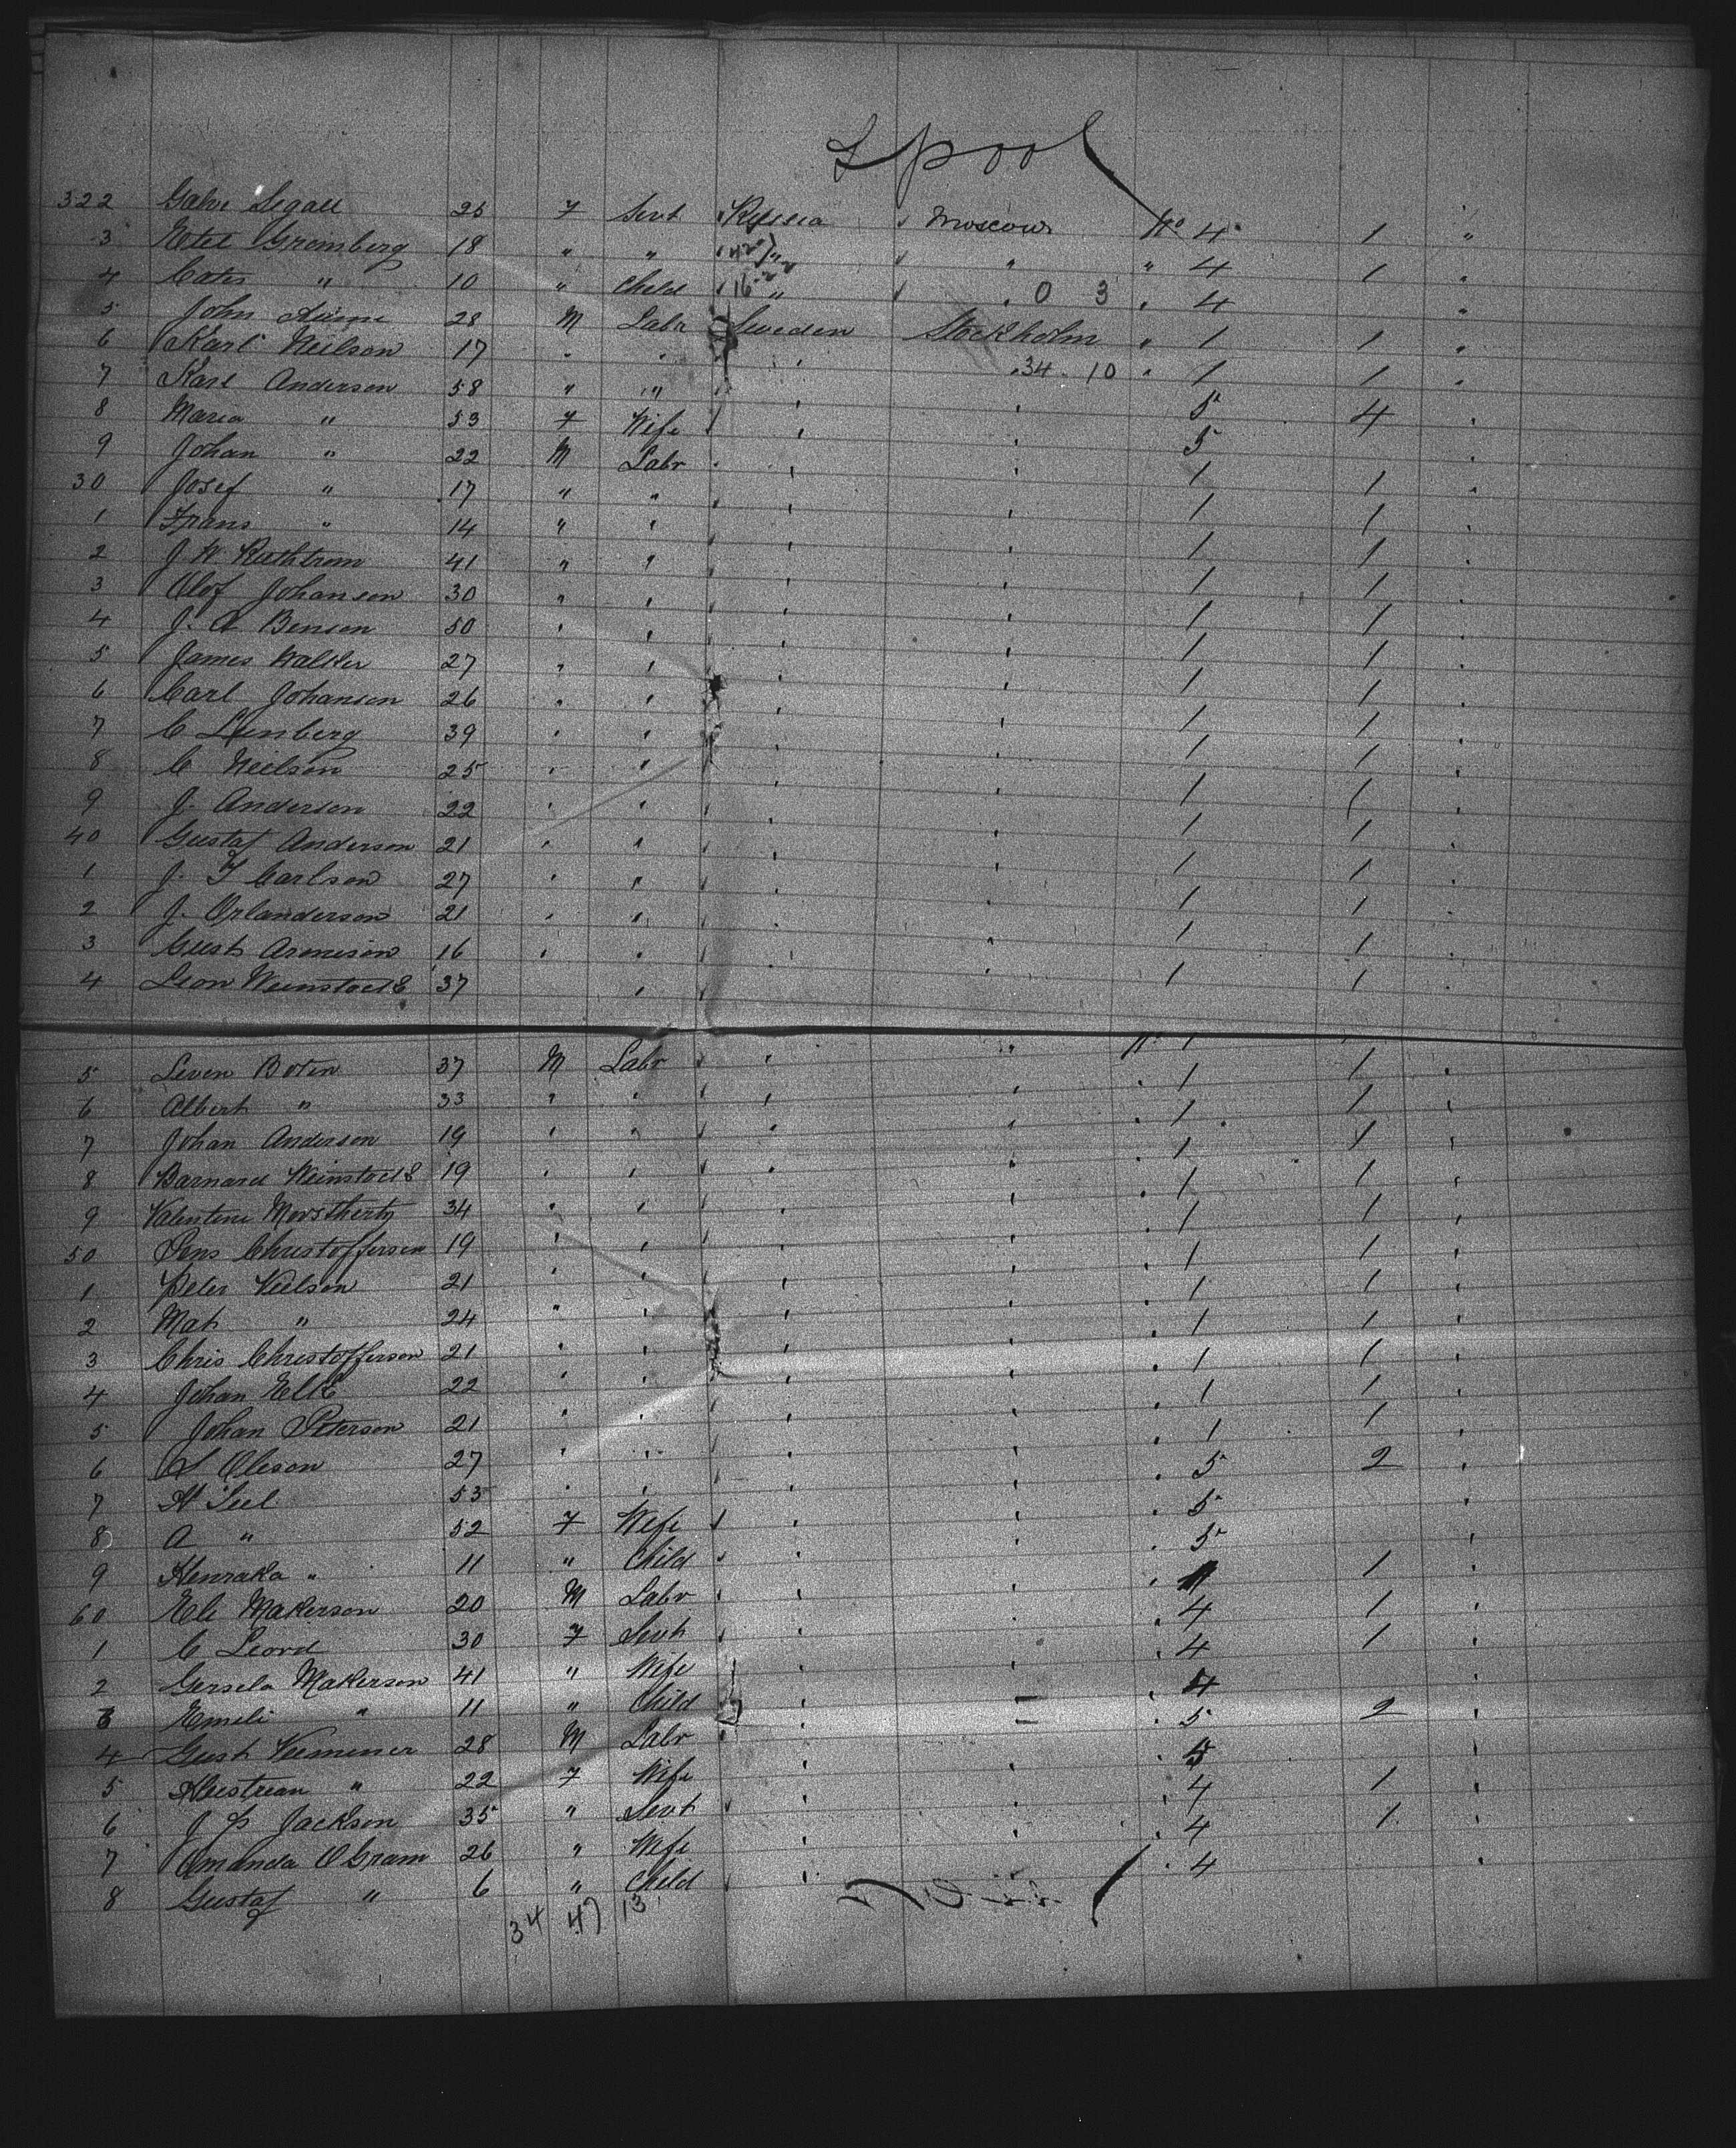 Lpool
322 Galve Segall 25 F Servt Russia Moscow No 4 1 "
3 Etel Gromberg 18 " " " " " 4 1 "
4 " 10 " Child 16 " 0 3 " 4 "
5 John 28 M Labr Sweden Stockholm " 1 1 "
6 Karl Neilson 17 " " " 34 10 " 1 1 "
7 Karl Anderson 58 " " " " 5 4 "
8 Maria " 53 F Wife " " 5 "
9 Johan " 22 M Labr " " 1 1 "
30 Josef " 17 " " " " 1 1 "
1 Frans " 14 " " " " 1 1 "
2 J W Ruthtrom 41 " " " " 1 1 "
3 Olof Johanson 30 " " " " 1 1 "
4 J. A Benson 50 " " " " 1 1 "
5 James Walker 27 " " " " 1 1 "
6 Carl Johanson 26 " " " " 1 1 "
7 C Lunberg 39 " " " " 1 1 "
8 C Neilson 25 " " " " 1 1 "
9 J. Anderson 22 " " " " 1 1 "
40 Gustaf Anderson 21 " " " " 1 1 "
1 J. F Carlson 27 " " " " 1 1 "
2 J. Orlanderson 21 " " " " 1 1 "
3 Gust Aronison 16 " " " " 1 1 "
4 Leon Weinstock 37 " " " 1 1
5 Leven Boten 37 M Labr " " No 1 1 "
6 Albert " 33 " " " " " 1 1 "
7 Johan Anderson 19 " " " " " 1 1 "
8 Barnard Weinstock 19 " " " " " 1 1 "
9 Valentine 34 " " " " " 1 1 "
50 Jens Christofferson 19 " " " " " 1 1 "
1 Peter Neilson 21 " " " " " 1 1 "
2 Mat " 24 " " " " " 1 1 "
3 Chris Christofferson 21 " " " " " 1 1 "
4 Johan Elk 22 " " " " " 1 1 "
5 Johan Peterson 21 " " " " " 1 1
6 S Oleson 27 " " " " " 1 1 "
7 53 " " " " " 5 2 "
8 A " 52 F Wife " " " 5 "
9 Henraka " 11 " Child " " " 5 "
60 Ele Makerson 20 M Labr " " " 1 1 "
1 C Leord 30 F Servt " " " 4 1 "
2 Gersela Makerson 41 " Wife " " " 4 1 "
3 Emili " 11 " Child " " " 4 "
4 Gust 28 M Labr " " " 5 2 "
5 " 22 F Wife " " " 5 "
6 J P Jackson 35 " Servt " " " 4 1 "
7 Amanda OGram 26 " Wife " " " 4 1 "
8 Gustaf " 6 " Child " " " 4 "
34 47 13